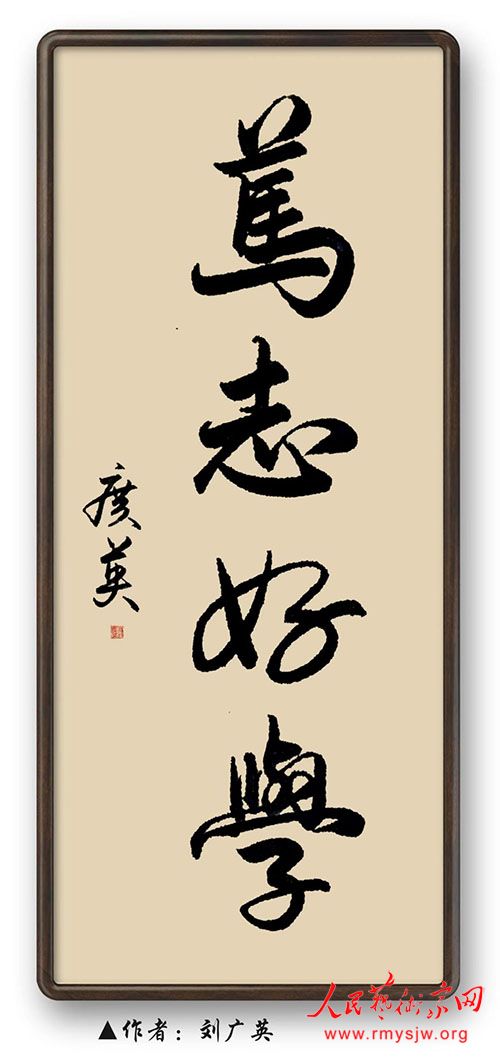 篤志好學
廣英
人民藝術家网
www.rmysjw.org
▲作者：刘广英